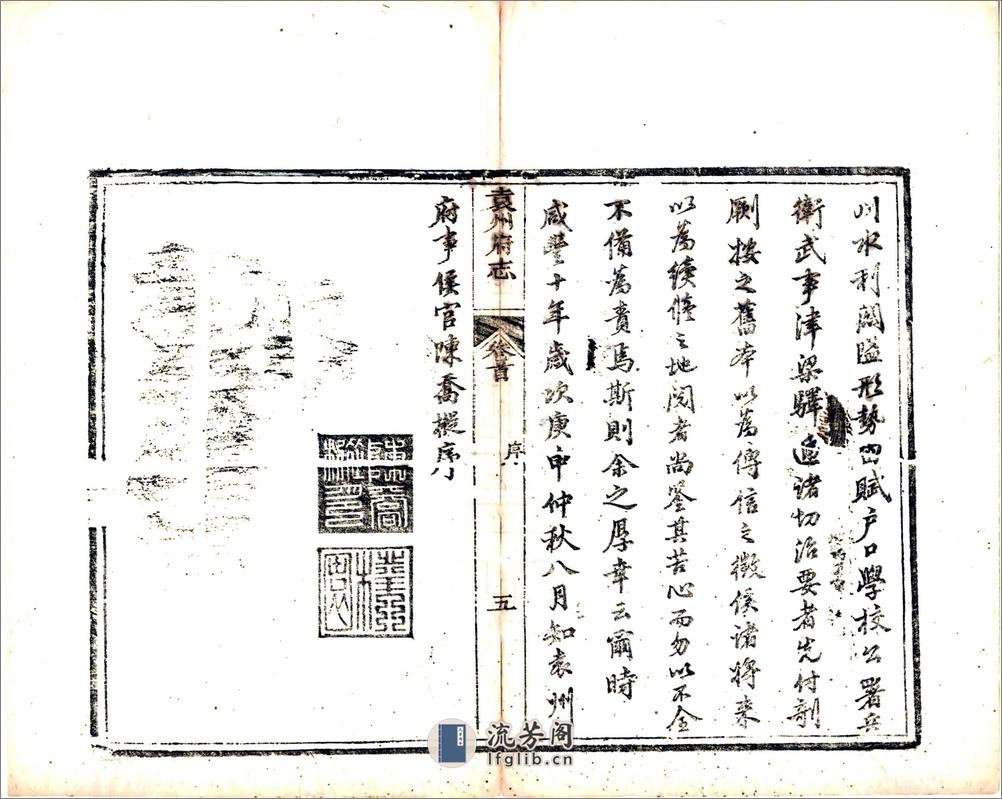 川水利關隘形勢田賦户口學校公署兵
衛武事津梁驛遞諸切治要者先付剞
劂按之舊本以為傳信之徵俟諸將來
以為續脩之地閱者尚鑒其苦心而勿以不全
不備為責焉斯則余之厚幸云爾時
咸豐十年歲次庚申仲秋八月知袁州
袁州府志
卷首
序
五
府事侯官陳喬樅序
流芳阁
lfglib.cn